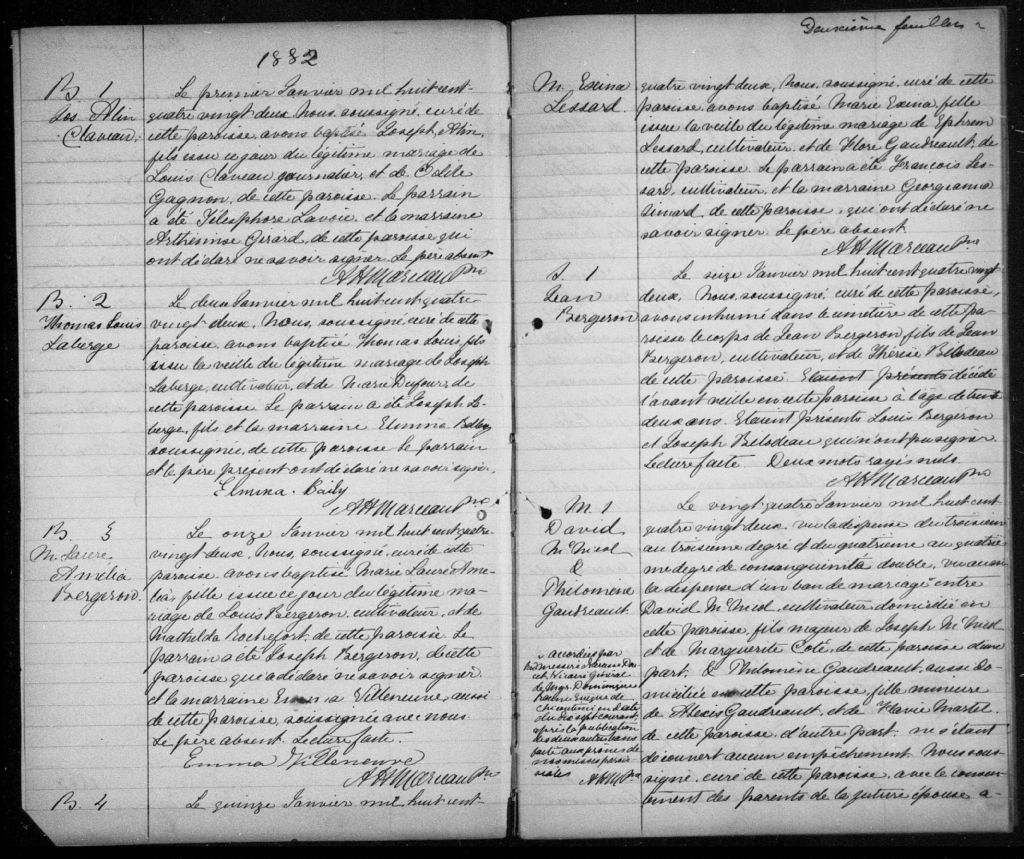 1882
B. 1
Jos Alin
Claveau.
Le premier Janvier mil huit cent
quatre vingt deux, Nous, soussigné, curé de
cette paroisse, avons baptisé Joseph, Alin,
fils issu ce jour du légitime mariage de
Louis Claveau journalier, et de Odile
Gagnon, de cette paroisse. Le parrain
a été Télesphore Lavoie, et la marraine
Arthémise Girard, de cette paroisse qui
ont déclaré ne savoir signer. Le père absent
AHMarceau Ptre
B. 2
Thomas Louis
Laberge
Le deux Janvier mil huit cent quatre
vingt deux, Nous, soussigné curé de cette
paroisse avons baptisé Thomas Louis, fils
issu la veille du légitime mariage de Joseph
Laberge, cultivateur, et de Marie Dufour, de
cette paroisse Le parrain a été Joseph La
berge, fils et la marraine Elmina Baily
soussignée, de cette paroisse Le parrain
et le père présent ont déclaré ne savoir signer.
Elmina Baily
AHMarceau Ptre
B. 3
M. Laure
Amélia
Bergeron
Le onze Janvier mil huit cent quatre
vingt deux, Nous, soussigné, curé de cette
paroisse avons baptisé Marie Laure Amé
lia, fille issue ce jour du légitime ma
riage de Louis Bergeron, cultivateur, et de
Mathilda Rochefort, de cette paroisse Le
parrain a été Joseph Bergeron, de cette
paroisse qui a déclaré ne savoir signer
et la marraine Emma Villeneuve, aussi
de cette paroisse, soussignée avec nous
Le père absent. Lecture faite.
Emma Villeneuve
AHMarceau Ptre
B. 4
Le quinze Janvier mil huit cent
Deuxième feuillet
M. Exina
Lessard.
quatre vingt deux, Nous, soussigné, curé de cette
paroisse, avons baptisé Marie Exina, fille
issue la veille du légitime mariage de Ephrem
Lessard, cultivateur, et de Flore Gaudreault, de
cette paroisse Le parrain a été François Les
sard, cultivateur, et la marraine Georgianna
Simard, de cette paroisse, qui ont déclaré ne
savoir signer. Le père absent
AHMarceau Ptre
S. 1
Jean
Bergeron
Le seize Janvier mil huit cent quatre vingt
deux, Nous, soussigné curé de cette paroisse,
avons inhumé dans le cimetière de cette pa
roisse le corps de Jean Bergeron, fils de Jean
Bergeron, cultivateur, et de Thérèse Bilodeau
de cette paroisse Etaient présents décédé
l'avant veille en cette paroisse à l'age de
deux ans. Etaient présents Louis Bergeron
et Joseph Bilodeau qui n'ont pu signer
Lecture faite. Deux mots rayés nuls.
AHMarceau Ptre
M. 1
David
McNicol
&
Philomène
Gaudreault
Le vingt quatre Janvier mil huit cent
quatre vingt deux, vu la dispense du troisième
au troisième degré et du quatrième au quatriè
me degré de consanguinité double, vu aussi
la dispense d'un ban de mariage entre
David McNicol, cultivateur domicilié en
cette paroisse, fils majeur de Joseph McNicol
et de Marguerite Coté, de cette paroisse d'une
part; & Philomène Gaudreault, aussi do
miciliée en cette paroisse, fille mineure
de Alexis Gaudreault, et de Flavie Martel
de cette paroisse, d'autre part, ne s'étant
découvert aucun empêchement. Nous sous
signé, curé de cette paroisse, avec le consen
tement des parents de la future épouse a-
accordés par
Vicaire Général
de Mgr. Dominique
Racine Evêque de
Chicoutimi en date
du dix sept courant,
après la publication
des deux autres bans
faite aux prônes de
nos messes parois
siales
AHM Ptre